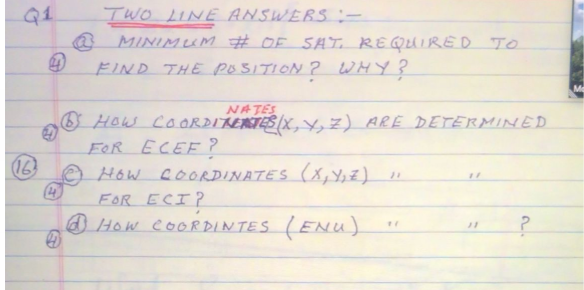 Q1 TWO LINE ANSWERS :-
(a) MINIMUM # OF SAT. REQUIRED TO
(4) FIND THE POSITION? WHY?
NATES
(4) (b) HOW COORDINATES (X, Y, Z) ARE DETERMINED
FOR ECEF?
(16) (4) (c) HOW COORDINATES (X, Y, Z) " "
FOR ECI?
(4) (d) HOW COORDINTES (ENU) " " ?